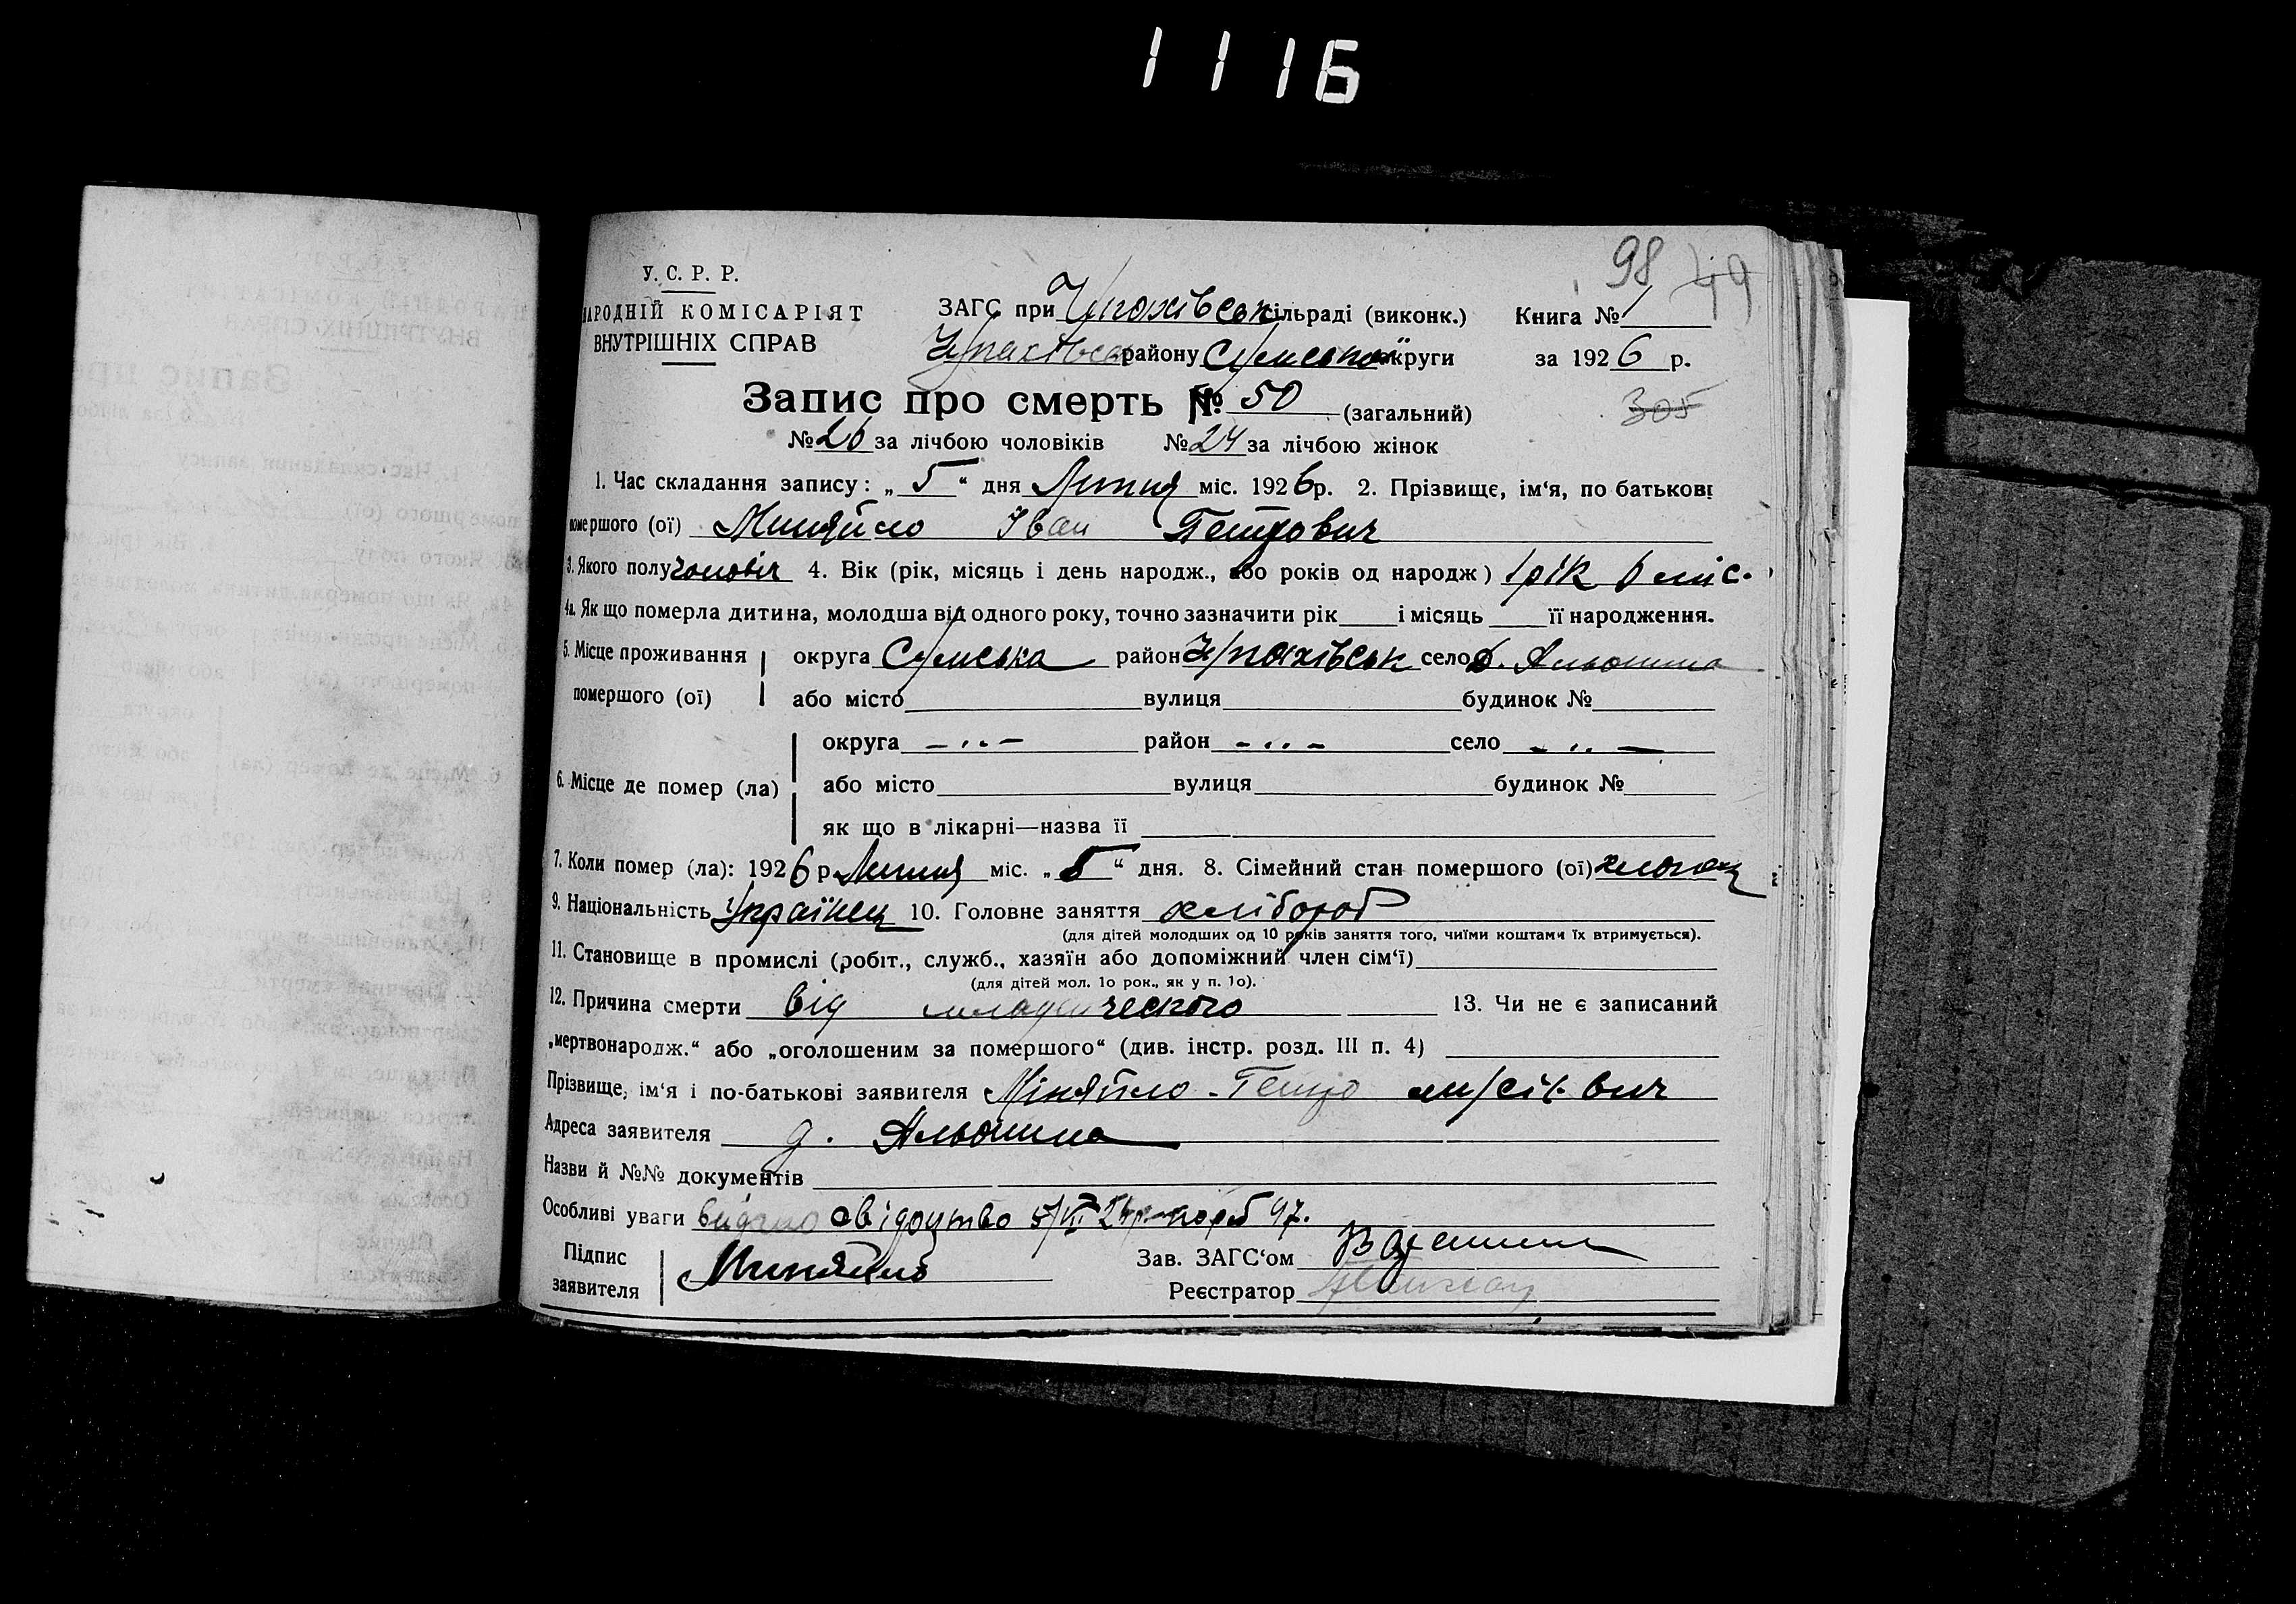 1116
98 49
У. С. Р. Р.
НАРОДНІЙ КОМІСАРІЯТ
ВНУТРІШНІХ СПРАВ
ЗАГС при сільраді (виконк.) Книга № 1
району Сумської округи за 1926 р.
Запис про смерть № 50 (загальний)
305
№ 26 за лічбою чоловіків № 24 за лічбою жінок
1. Час складання запису: „ 5 “ дня Липня міс. 1926 р. 2. Прізвище, ім‘я, по батькові
помершого (ої) Миняйло Іван Петрович
3. Якого полу чоловіч 4. Вік (рік, місяць і день народж., або років од народж) 1 рік 6 міс.
4а. Як що померла дитина, молодша від одного року, точно зазначити рік і місяць її народження.
5. Місце проживання округа Сумська район село
помершого (ої) або місто вулиця будинок №
округа - „ - район - „ - село - „ -
6. Місце де помер (ла) або місто вулиця будинок №
як що в лікарні—назва її
7. Коли помер (ла): 1926 р. Липня міс. „ 5 “ дня. 8. Сімейний стан помершого (ої)
9. Національність Українець 10. Головне заняття хлібороб
(для дітей молодших од 10 років заняття того, чиїми коштами їх втримується).
11. Становище в промислі (робіт., служб., хазяїн або допоміжний член сім‘ї)
(для дітей мол. 1о рок., як у п. 1о).
12. Причина смерти від младенческого 13. Чи не є записаний
„мертвонародж.“ або „оголошеним за помершого“ (див. інстр. розд. III п. 4)
Прізвище, ім‘я і по-батькові заявителя Міняйло - Петро
Адреса заявителя д. Альошина
Назви й №№ документів
Особливі уваги видано свідоцтво 47.
Підпис Зав. ЗАГС‘ом
заявителя Миняйло Реєстратор